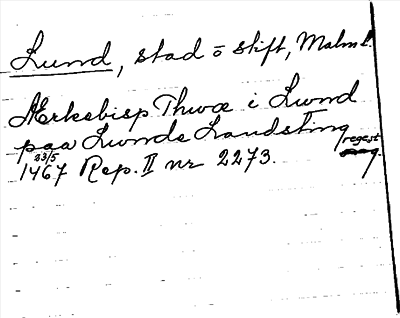 Lund, stad o stift, Malm l.
Ærkebisp Thwæ i Lwnd
paa Lwnde Landsting regest
23/5
1467 Rep. II nr 2273.